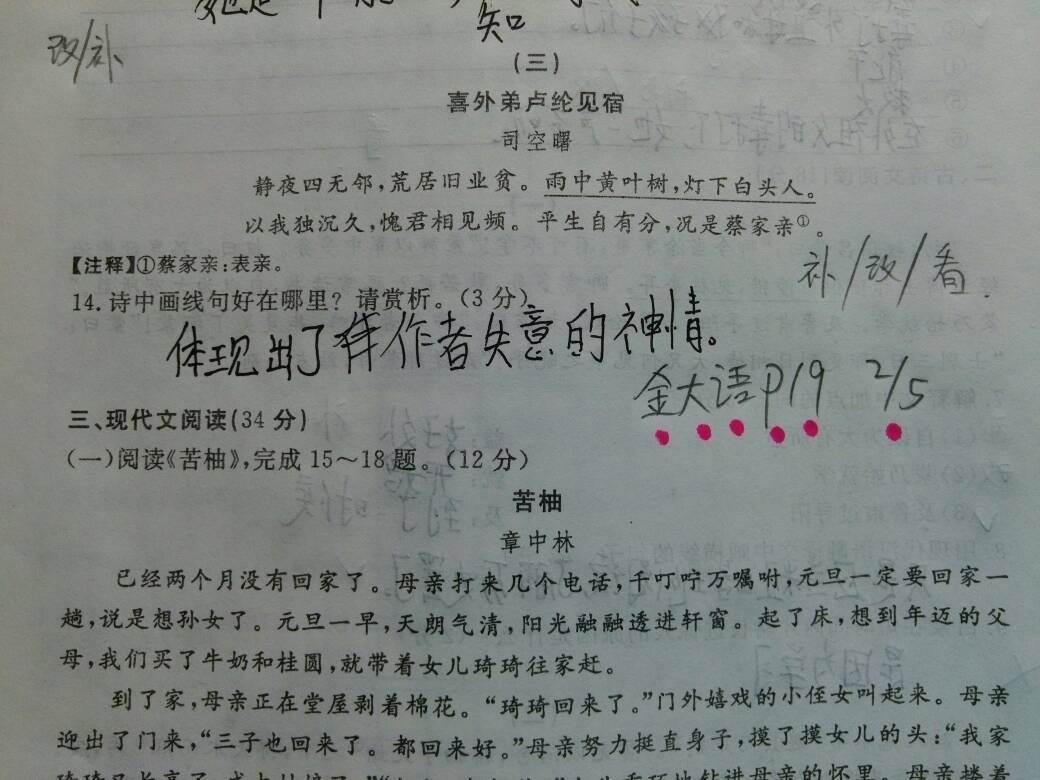 知
改/补
(三)
喜外弟卢纶见宿
司空曙
静夜四无邻,荒居旧业贫。雨中黄叶树,灯下白头人。
以我独沉久,愧君相见频。平生自有分,况是蔡家亲①。
【注释】①蔡家亲:表亲。
补/改/看.
14.诗中画线句好在哪里?请赏析。(3分)
体现出了作者失意的神情。
金大语P19 2/5
三、现代文阅读(34分)
(一)阅读《苦柚》,完成15~18题。(12分)
苦柚
章中林
已经两个月没有回家了。母亲打来几个电话,千叮咛万嘱咐,元旦一定要回家一
趟,说是想孙女了。元旦一早,天朗气清,阳光融融透进轩窗。起了床,想到年迈的父
母,我们买了牛奶和桂圆,就带着女儿琦琦往家赶。
到了家,母亲正在堂屋剥着棉花。“琦琦回来了。”门外嬉戏的小侄女叫起来。母亲
迎出了门来,“三子也回来了。都回来好。”母亲努力挺直身子,摸了摸女儿的头:“我家